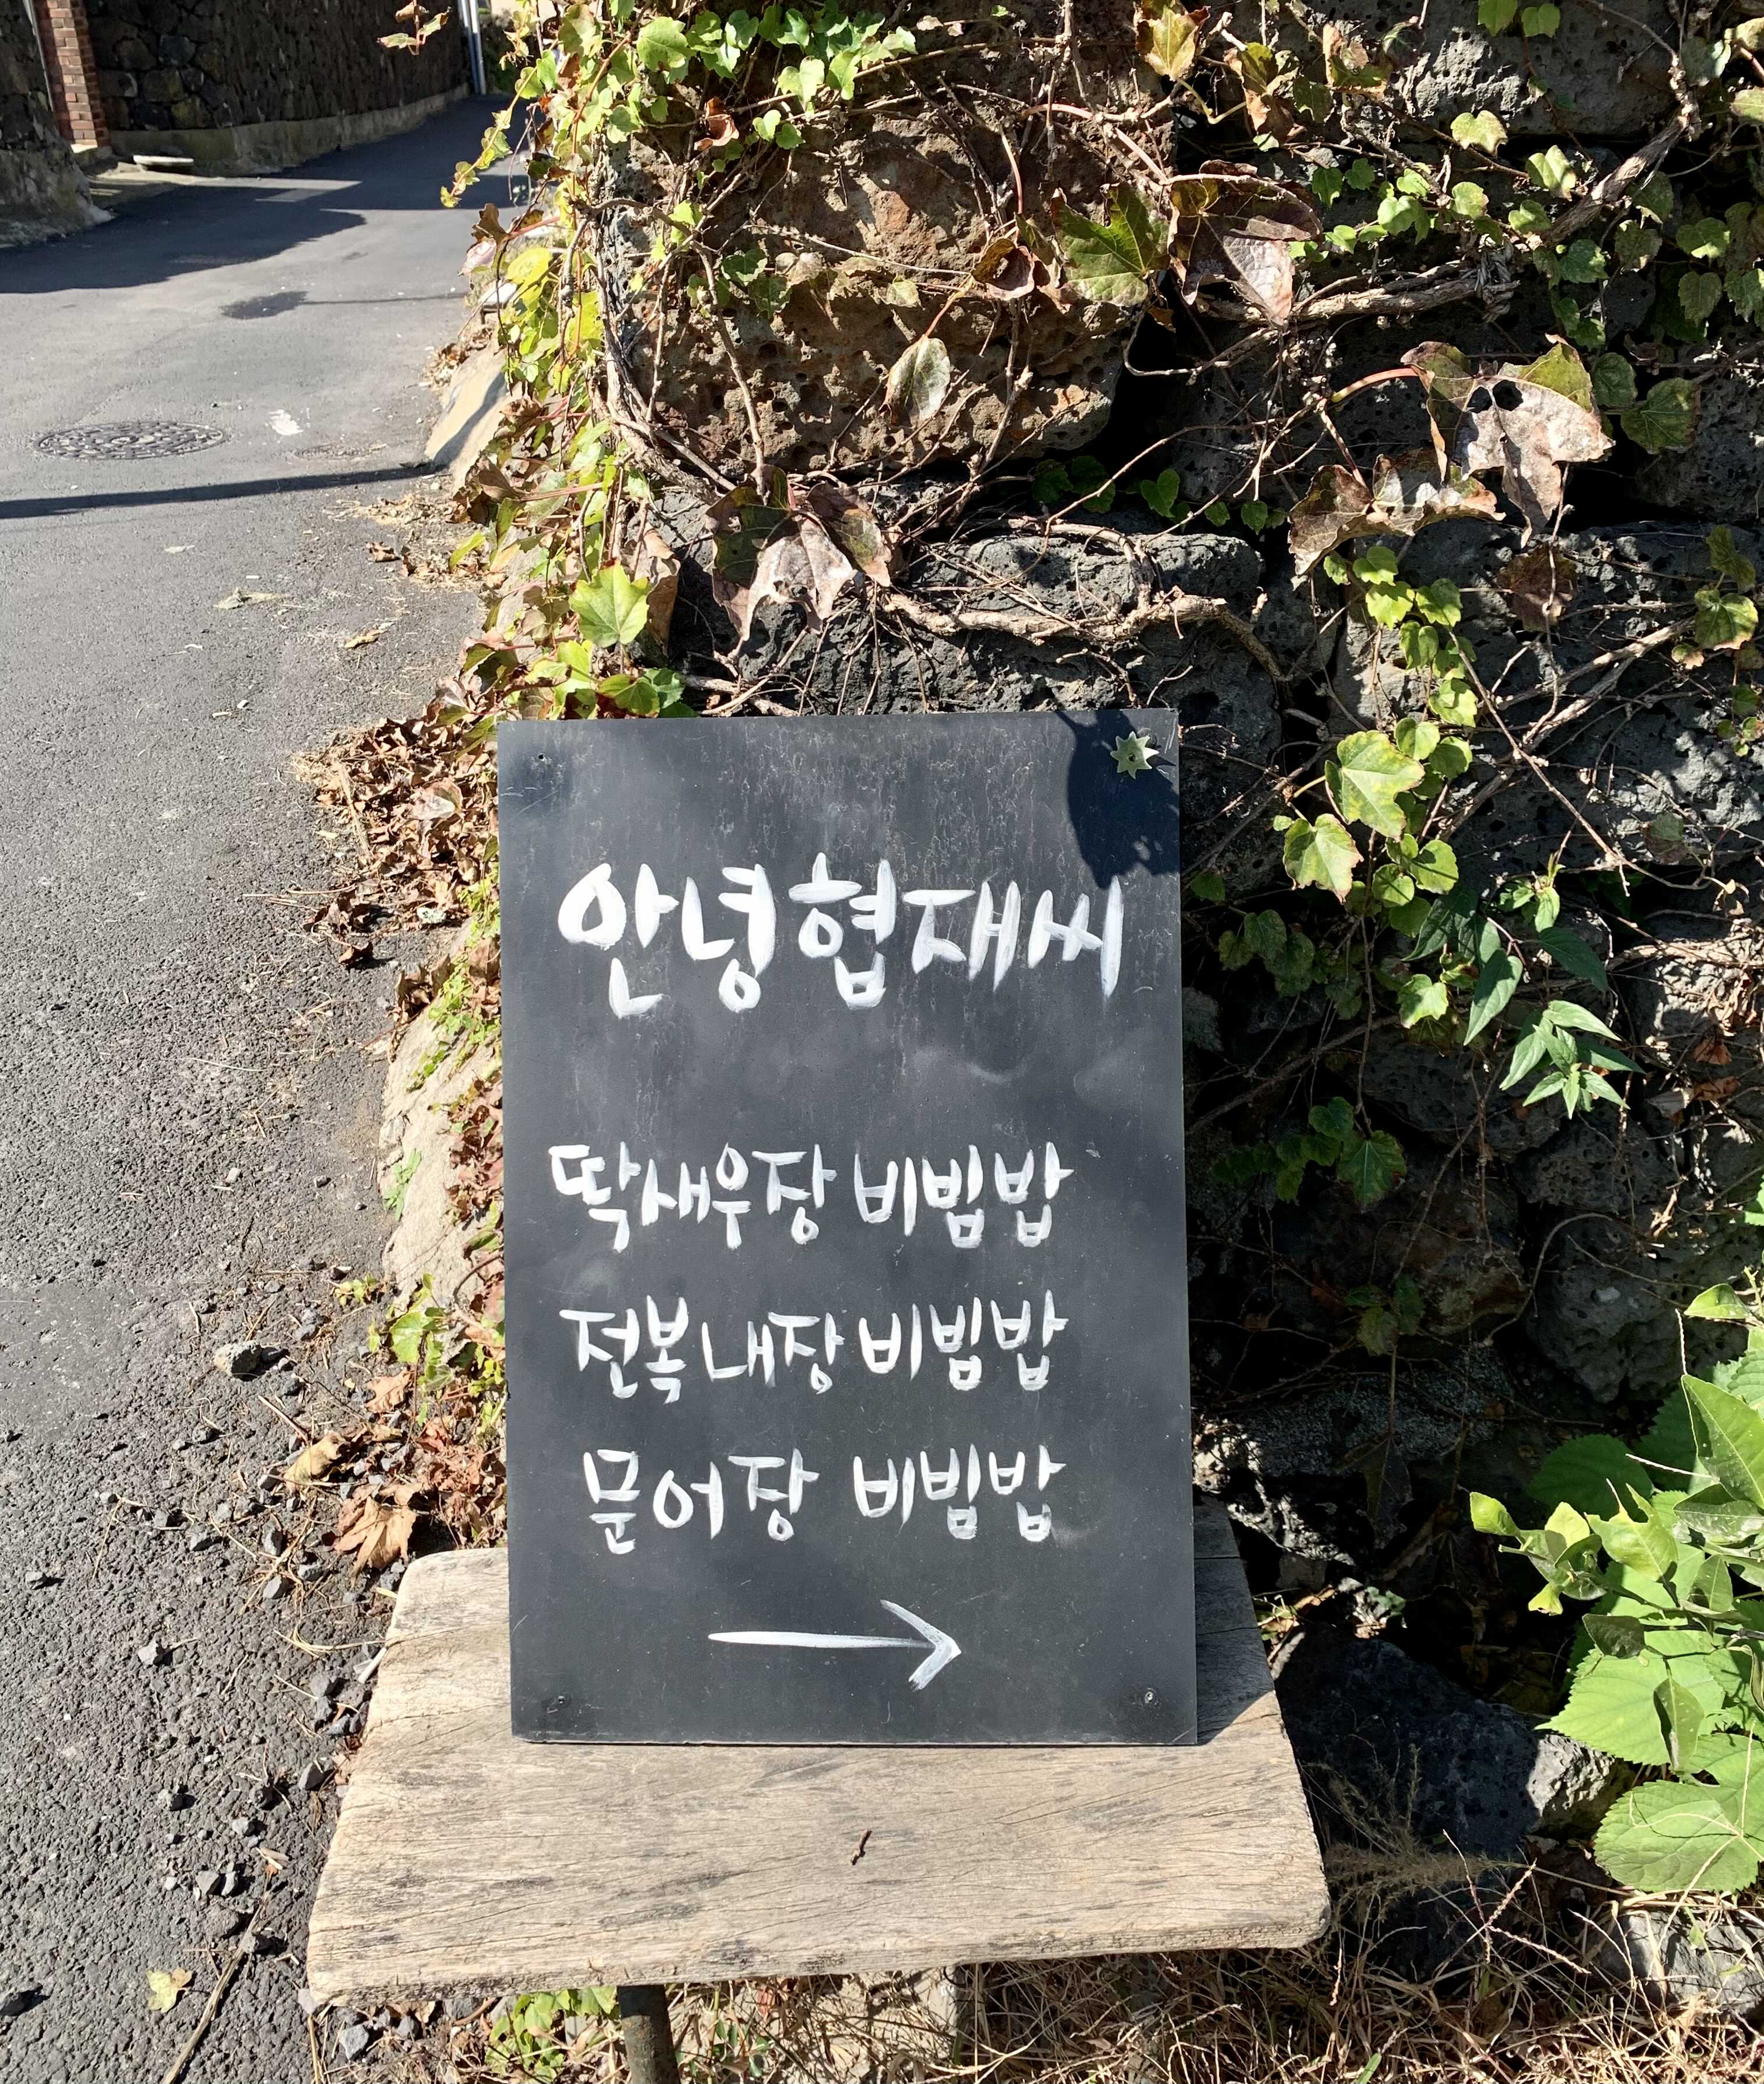 안녕협재씨
딱새우장 비빔밥
전복내장 비빔밥
문어장 비빔밥